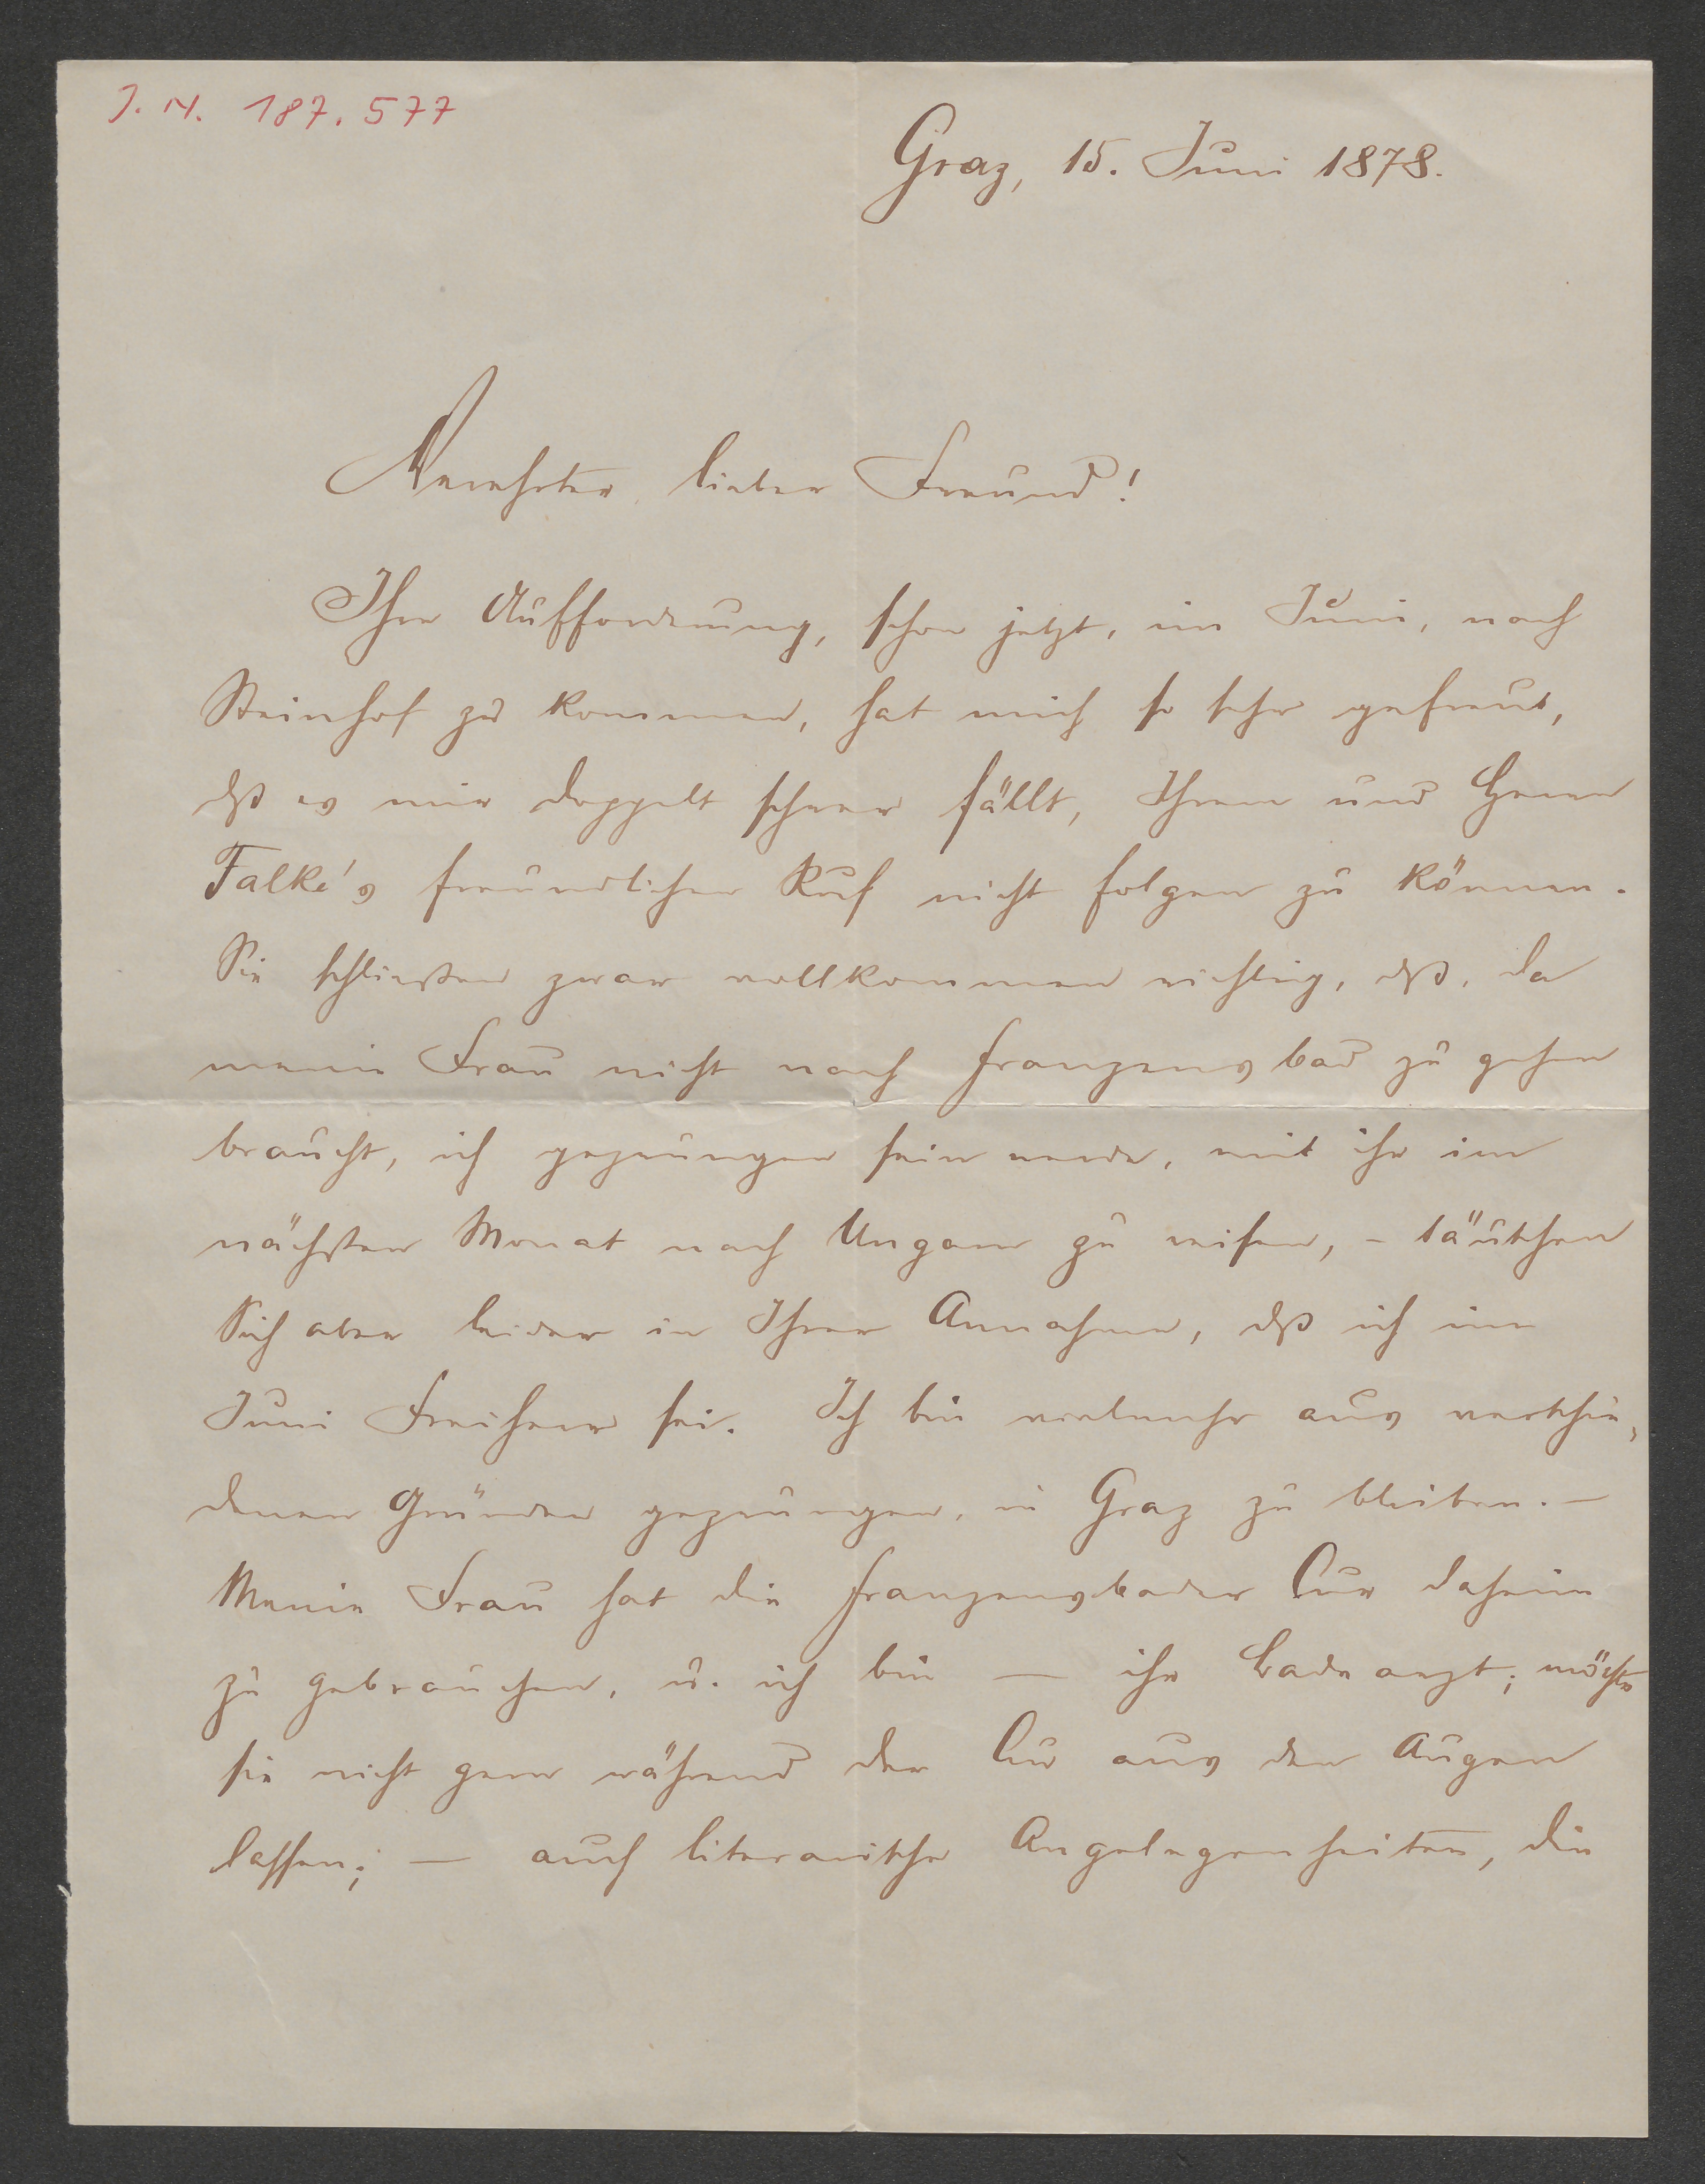 J. N. 187.577
Graz, 15. Juni 1878.
Verehrter, lieber Freund!
Ihre Aufforderung, schon jetzt, im Juni, nach
Steinhof zu kommen, hat mich so sehr gefreut,
dß es mir doppelt schwer fällt, Ihrem und Herrn
Falke's freundlichen Ruf nicht folgen zu können.
Sie schließen zwar vollkommen richtig, dß, da
meine Frau nicht nach Franzensbad zu gehen
braucht, ich gezwungen sein werde, mit ihr im
nächsten Monat nach Ungarn zu reisen, – täuschen
Sich aber leider in Ihrer Annahme, dß ich im
Juni Freiherr sei. Ich bin vielmehr aus verschie-
denen Gründen gezwungen, in Graz zu bleiben. –
Meine Frau hat die Franzensbader Cur daheim
zu gebrauchen, u. ich bin — ihr Badearzt; möchte
sie nicht gern während der Cur aus den Augen
lassen; — auch literarische Angelegenheiten, die